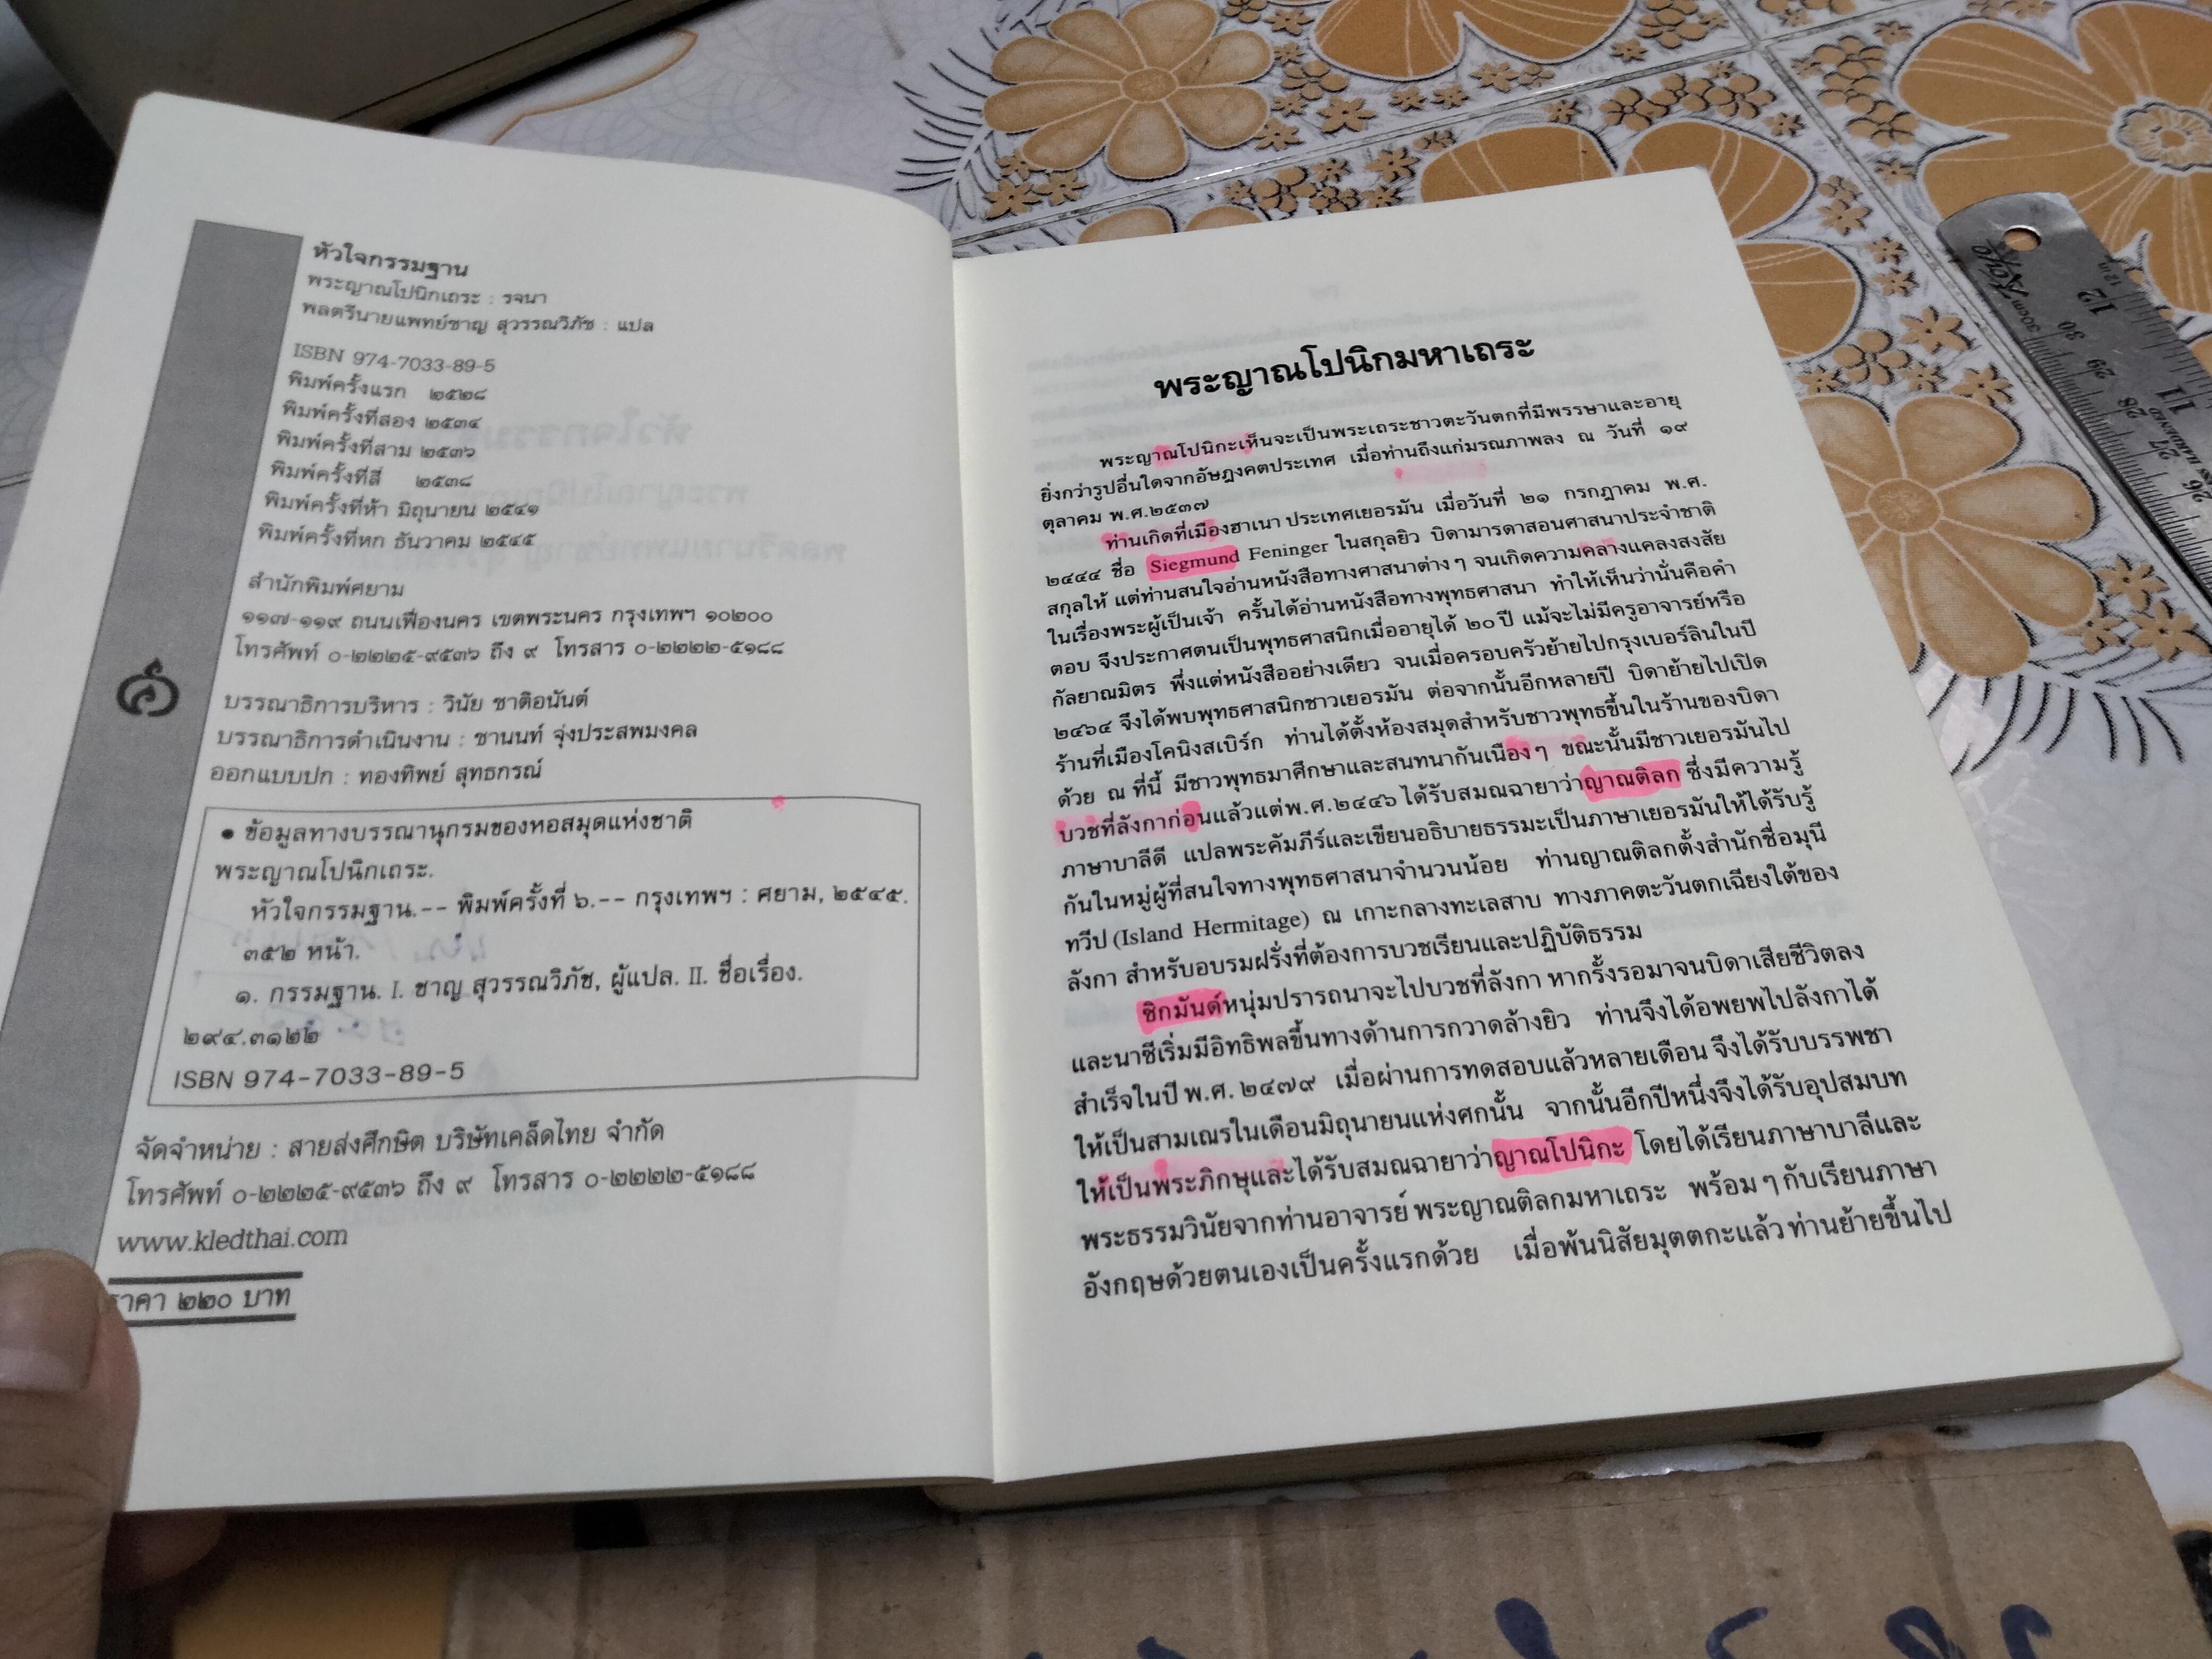 หัวใจกรรมฐาน
พระญาณโปนิกเถระ : รจนา
พลตรีนายแพทย์ชาญ สุวรรณวิภัช : แปล
ISBN 974-7033-89-5
พิมพ์ครั้งแรก ๒๕๒๘
พิมพ์ครั้งที่สอง ๒๕๓๔
พิมพ์ครั้งที่สาม ๒๕๓๖
พิมพ์ครั้งที่สี่ ๒๕๓๘
พิมพ์ครั้งที่ห้า มิถุนายน ๒๕๔๑
พิมพ์ครั้งที่หก ธันวาคม ๒๕๔๕
สำนักพิมพ์ศยาม
๑๑๗-๑๑๙ ถนนเฟื่องนคร เขตพระนคร กรุงเทพฯ ๑๐๒๐๐
โทรศัพท์ ๐-๒๒๒๕-๙๕๓๖ ถึง ๙ โทรสาร ๐-๒๒๒๒-๕๑๘๘
บรรณาธิการบริหาร : วินัย ชาติอนันต์
บรรณาธิการดำเนินงาน : ชานนท์ จุ่งประสพมงคล
ออกแบบปก : ทองทิพย์ สุทธกรณ์
• ข้อมูลทางบรรณานุกรมของหอสมุดแห่งชาติ
พระญาณโปนิกเถระ.
หัวใจกรรมฐาน.-- พิมพ์ครั้งที่ ๖.-- กรุงเทพฯ : ศยาม, ๒๕๔๕.
๓๕๒ หน้า.
๑. กรรมฐาน. I. ชาญ สุวรรณวิภัช, ผู้แปล. II. ชื่อเรื่อง.
๒๙๔.๓๑๒๒
ISBN 974-7033-89-5
จัดจำหน่าย : สายส่งศึกษิต บริษัทเคล็ดไทย จำกัด
โทรศัพท์ ๐-๒๒๒๕-๙๕๓๖ ถึง ๙ โทรสาร ๐-๒๒๒๒-๕๑๘๘
www.kledthai.com
ราคา ๒๒๐ บาท
พระญาณโปนิกมหาเถระ
พระญาณโปนิกะเห็นจะเป็นพระเถระชาวตะวันตกที่มีพรรษาและอายุ
ยิ่งกว่ารูปอื่นใดจากอัษฎงคตประเทศ เมื่อท่านถึงแก่มรณภาพลง ณ วันที่ ๑๙
ตุลาคม พ.ศ.๒๕๓๗
ท่านเกิดที่เมืองฮาเนา ประเทศเยอรมัน เมื่อวันที่ ๒๑ กรกฎาคม พ.ศ.
๒๔๔๔ ชื่อ Siegmund Feninger ในสกุลยิว บิดามารดาสอนศาสนาประจำชาติ
สกุลให้ แต่ท่านสนใจอ่านหนังสือทางศาสนาต่างๆ จนเกิดความคลางแคลงสงสัย
ในเรื่องพระผู้เป็นเจ้า ครั้นได้อ่านหนังสือทางพุทธศาสนา ทำให้เห็นว่านั่นคือคำ
ตอบ จึงประกาศตนเป็นพุทธศาสนิกเมื่ออายุได้ ๒๐ ปี แม้จะไม่มีครูอาจารย์หรือ
กัลยาณมิตร พึ่งแต่หนังสืออย่างเดียว จนเมื่อครอบครัวย้ายไปกรุงเบอร์ลินในปี
๒๔๖๔ จึงได้พบพุทธศาสนิกชาวเยอรมัน ต่อจากนั้นอีกหลายปี บิดาย้ายไปเปิด
ร้านที่เมืองโคนิงสเบิร์ก ท่านได้ตั้งห้องสมุดสำหรับชาวพุทธขึ้นในร้านของบิดา
ด้วย ณ ที่นี้ มีชาวพุทธมาศึกษาและสนทนากันเนืองๆ ขณะนั้นมีชาวเยอรมันไป
บวชที่ลังกาก่อนแล้วแต่พ.ศ.๒๔๔๖ ได้รับสมณฉายาว่าญาณติลก ซึ่งมีความรู้
ภาษาบาลีดี แปลพระคัมภีร์และเขียนอธิบายธรรมะเป็นภาษาเยอรมันให้ได้รับรู้
กันในหมู่ผู้ที่สนใจทางพุทธศาสนาจำนวนน้อย ท่านญาณติลกตั้งสำนักชื่อมุนี
ทวีป (Island Hermitage) ณ เกาะกลางทะเลสาบ ทางภาคตะวันตกเฉียงใต้ของ
ลังกา สำหรับอบรมฝรั่งที่ต้องการบวชเรียนและปฏิบัติธรรม
ซิกมันด์หนุ่มปรารถนาจะไปบวชที่ลังกา หากรั้งรอมาจนบิดาเสียชีวิตลง
และนาซีเริ่มมีอิทธิพลขึ้นทางด้านการกวาดล้างยิว ท่านจึงได้อพยพไปลังกาได้
สำเร็จในปี พ.ศ. ๒๔๗๙ เมื่อผ่านการทดสอบแล้วหลายเดือน จึงได้รับบรรพชา
ให้เป็นสามเณรในเดือนมิถุนายนแห่งศกนั้น จากนั้นอีกปีหนึ่งจึงได้รับอุปสมบท
ให้เป็นพระภิกษุและได้รับสมณฉายาว่าญาณโปนิกะ โดยได้เรียนภาษาบาลีและ
พระธรรมวินัยจากท่านอาจารย์ พระญาณติลกมหาเถระ พร้อมๆ กับเรียนภาษา
อังกฤษด้วยตนเองเป็นครั้งแรกด้วย เมื่อพ้นนิสัยมุตตกะแล้ว ท่านย้ายขึ้นไป
12
11
30
29
28
27
26